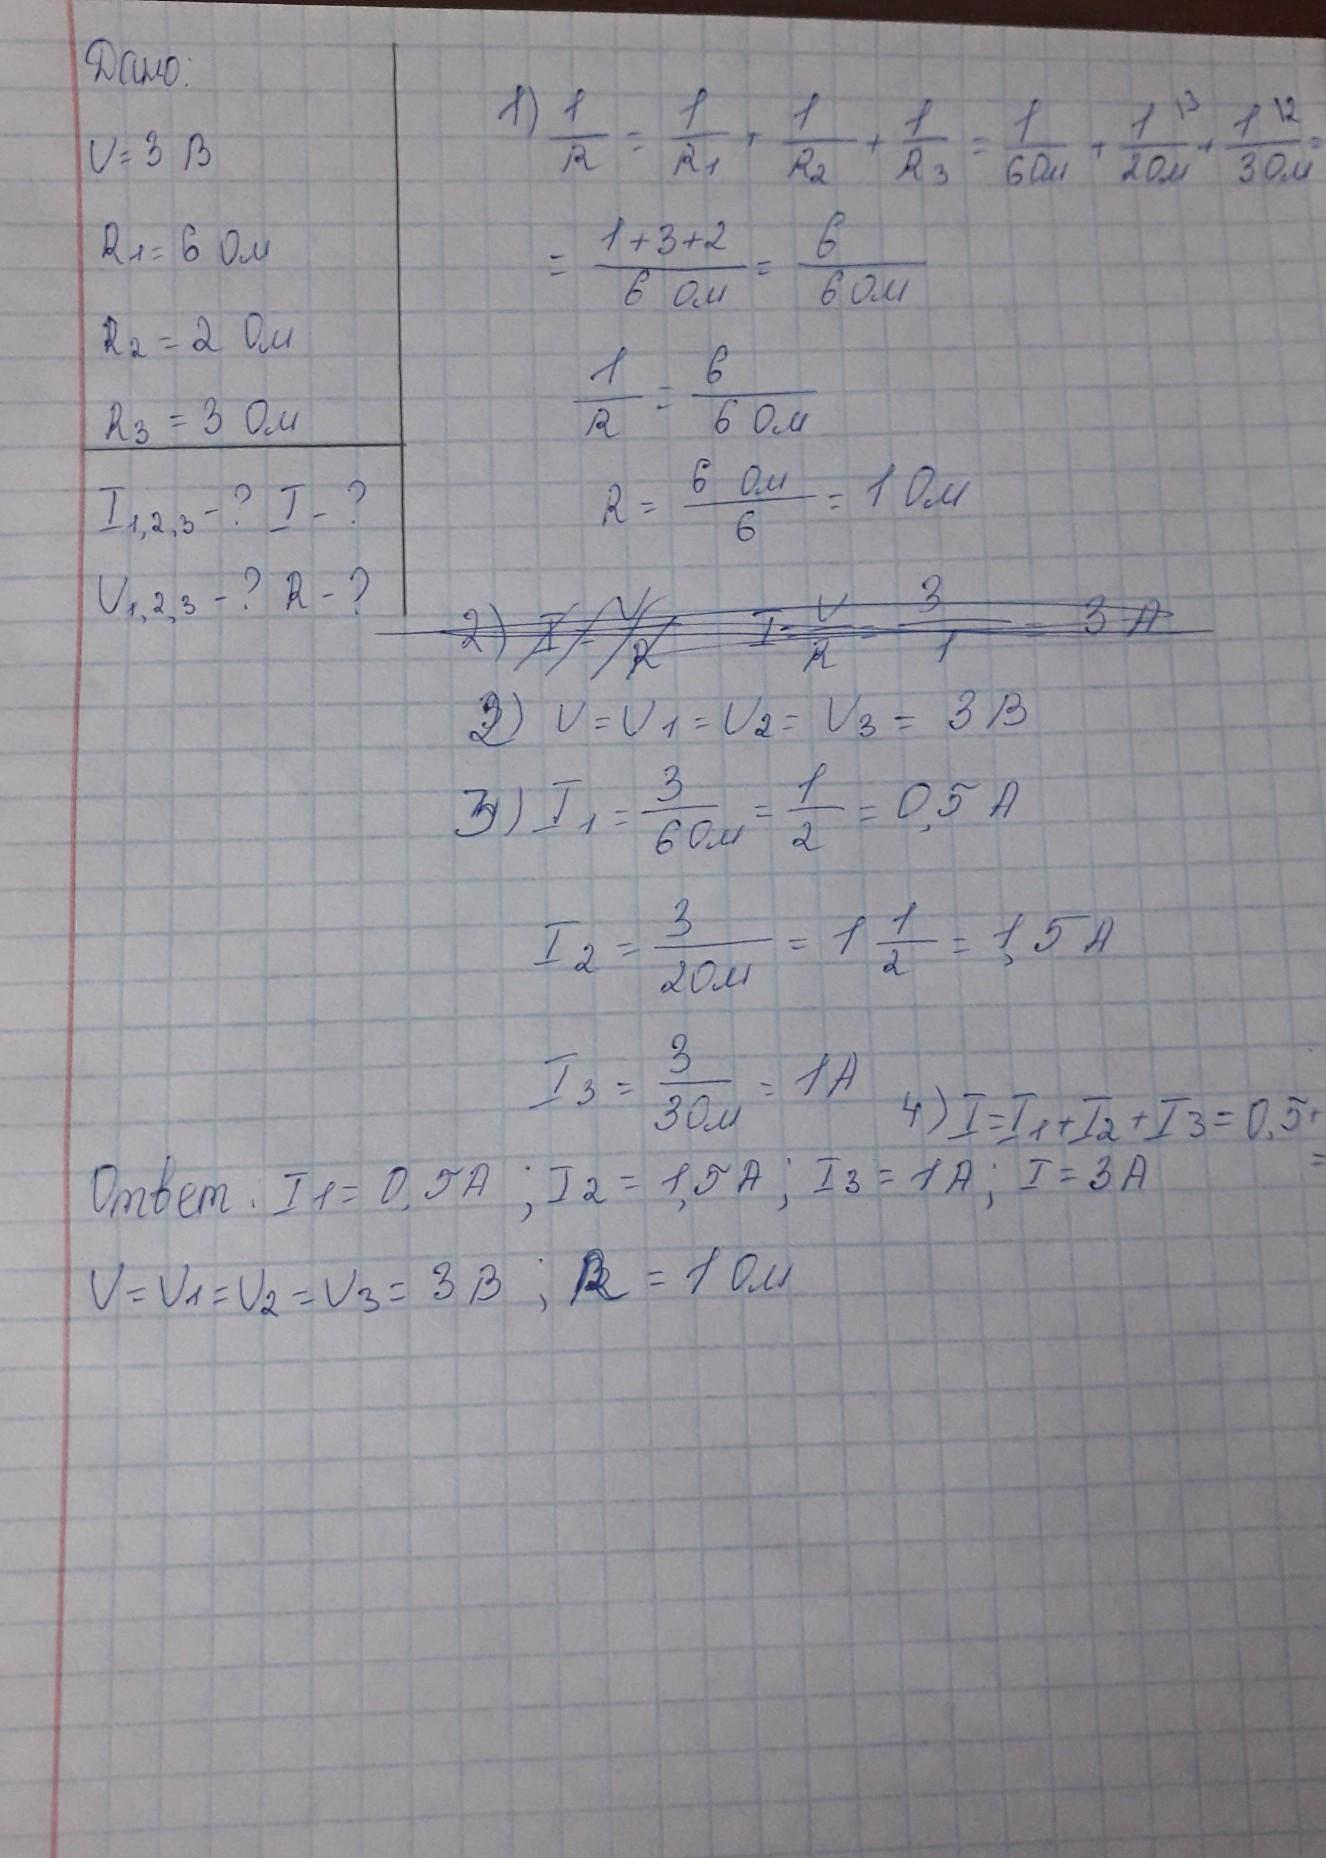 Дано:
U = 3 В
R1 = 6 Ом
R2 = 2 Ом
R3 = 3 Ом
I1,2,3 - ? I - ?
U1,2,3 - ? R - ?
1) 1/R = 1/R1 + 1/R2 + 1/R3 = 1/6Ом + 1\3/2Ом + 1\2/3Ом =
= 1+3+2/6 Ом = 6/6 Ом
1/R = 6/6 Ом
R = 6 Ом/6 = 1 Ом
2) I = U/R I = U/R = 3/1 = 3 А
2) U = U1 = U2 = U3 = 3 В
3) I1 = 3/6 Ом = 1/2 = 0,5 А
I2 = 3/2 Ом = 1 1/2 = 1,5 А
I3 = 3/3 Ом = 1 А
4) I = I1 + I2 + I3 = 0,5+
=
Ответ: I1 = 0,5 А; I2 = 1,5 А; I3 = 1 А; I = 3 А
U = U1 = U2 = U3 = 3 В; R = 1 Ом